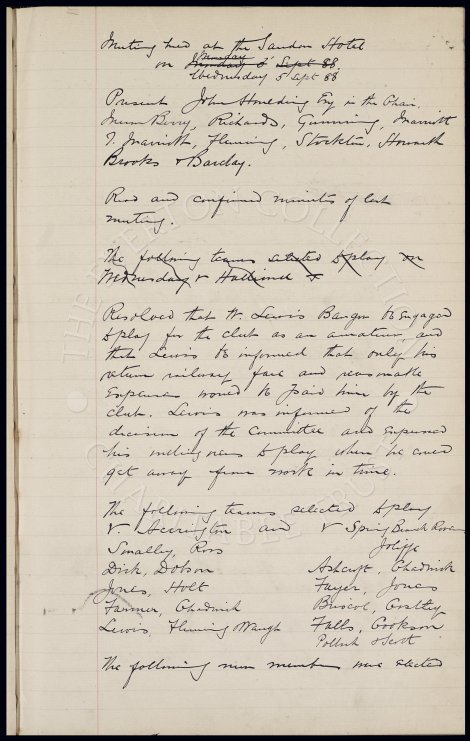 Meeting held at the Sandon Hotel
on Monday Sept 88
Wednesday 5 Sept 88
Present John Houlding Esq in the Chair.
Messrs Berry, Richards, Gunning, Marriott
T. Marriott, Fleming, Stockton, Howarth
Brooks & Barclay.
Read and confirmed minutes of last
meeting.
The following teams selected to play on
Wednesday v Halliwell
Resolved that W. Lewis Bangor be Engaged
to play for the club as an amateur, and
that Lewis be informed that only his
return railway fare and reasonable
Expenses would be paid him by the
club. Lewis was informed of the
decision of the Committee and Expressed
his willingness to play when he could
get away from work in time.
The following teams selected to play
v. Accrington and v Spring Bank Rovers
Smalley, Ross Joliffe
Dick, Dobson Ashcroft, Chadwick
Jones, Holt Fayer, Jones
Farmer, Chadwick Briscoe, Costley
Lewis, Fleming Waugh Falls, Cookson
Pollock & Scott
The following new members were elected
THE EVERTON COLLECTION
CHARITABLE TRUST